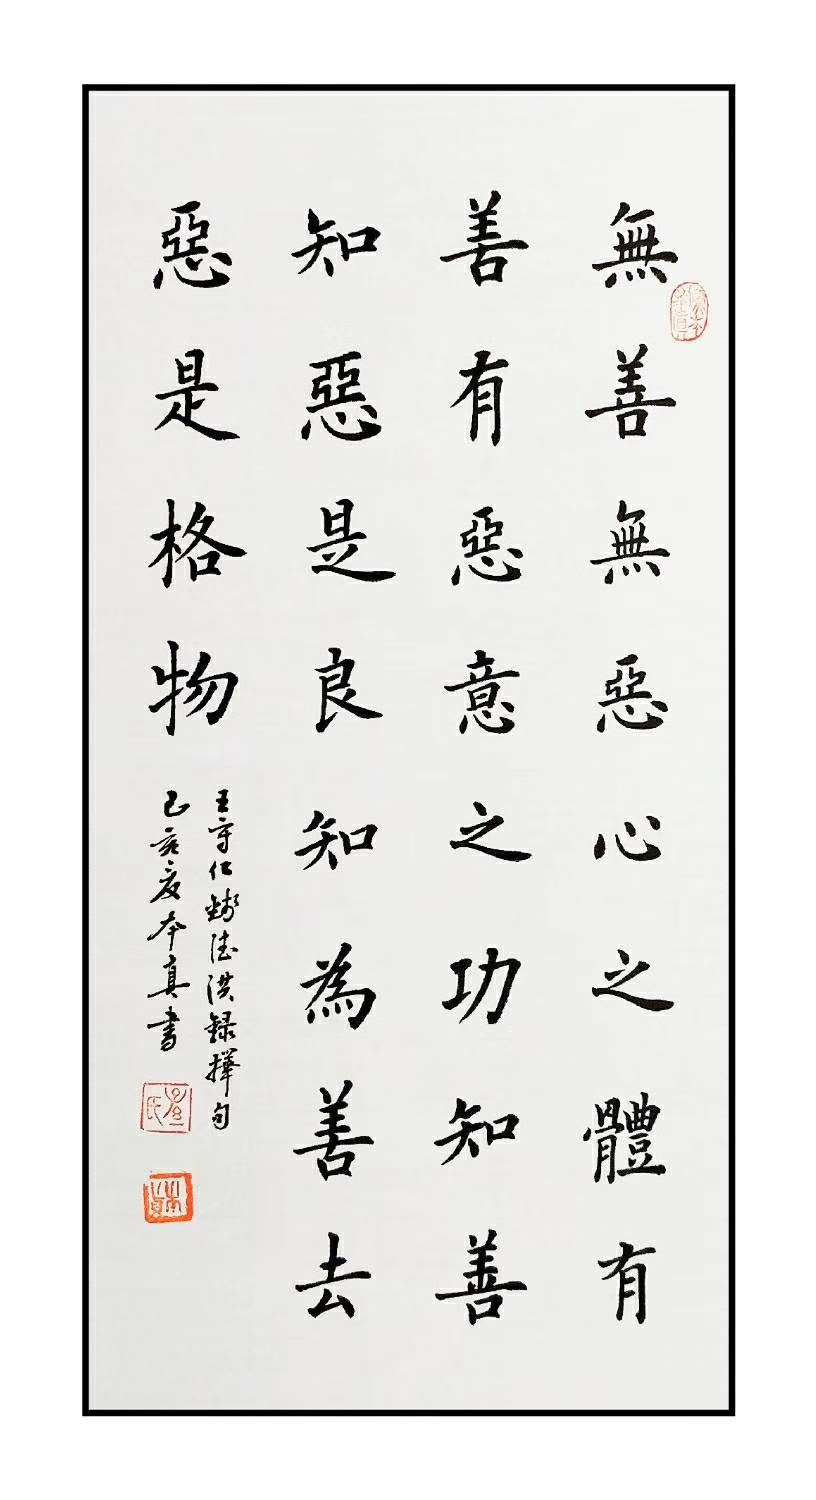 無善無惡心之體有
善有惡意之功知善
知惡是良知為善去
惡是格物
王守仁錢德洪録擇句
己亥夏本真書